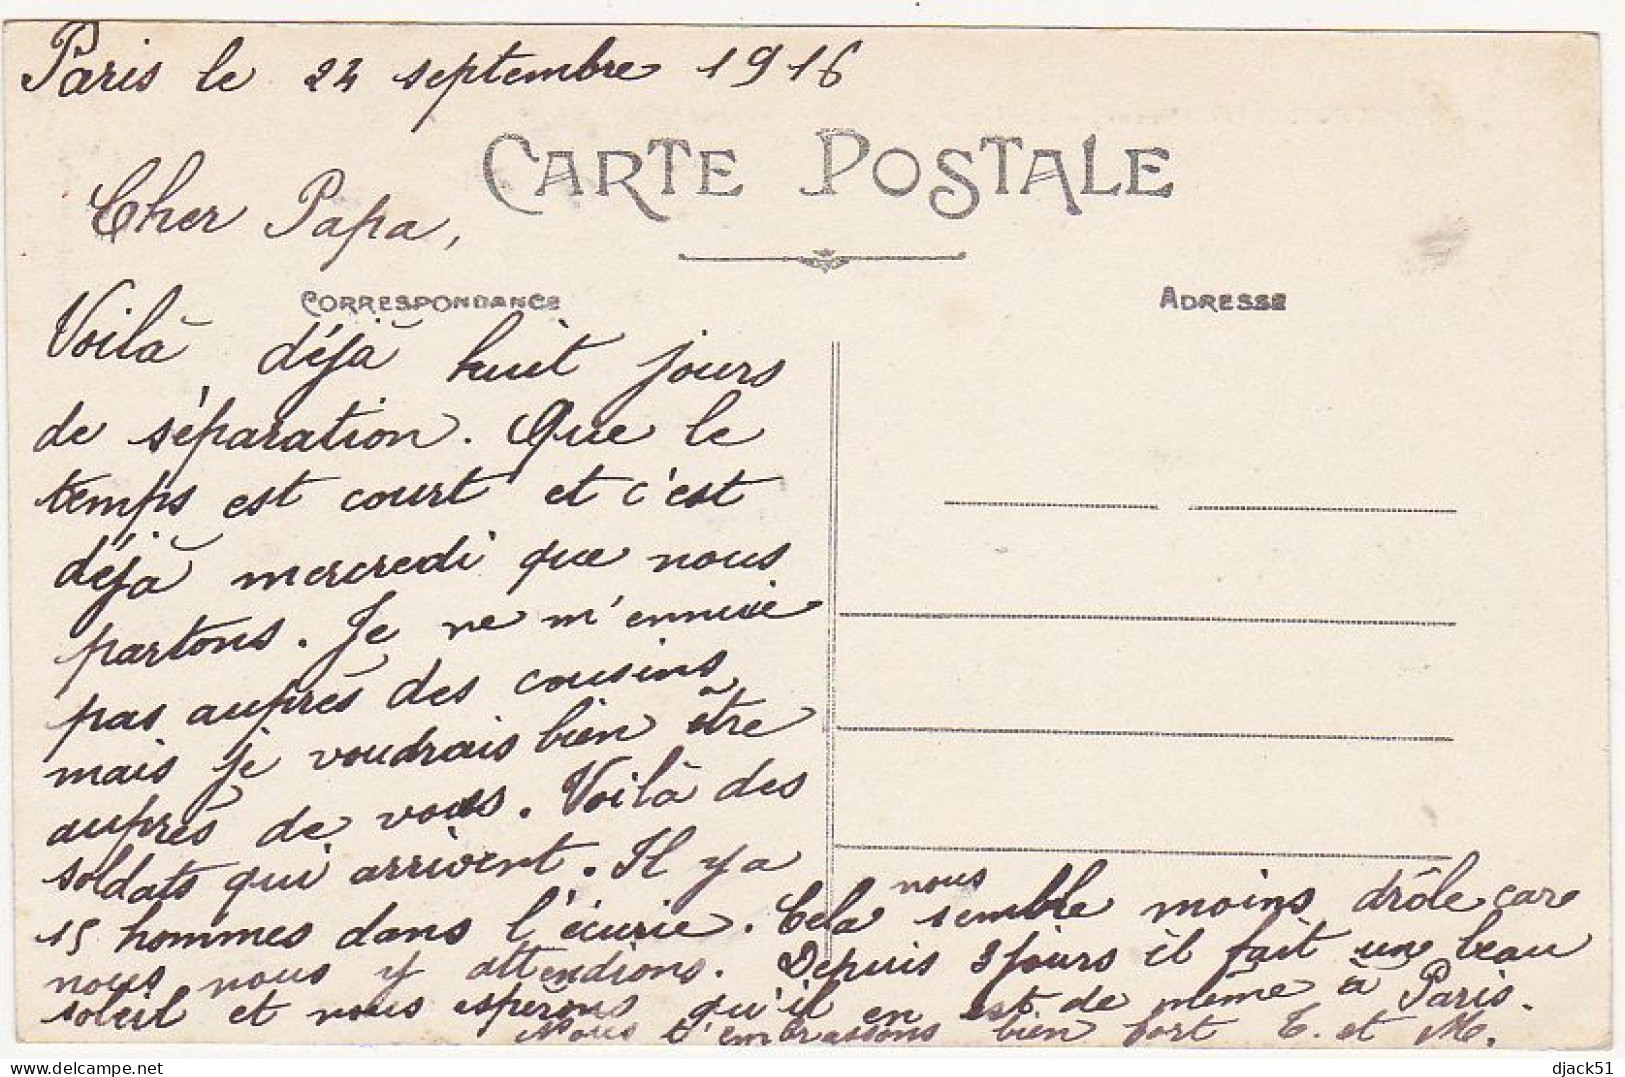 Paris le 24 septembre 1916
CARTE POSTALE
Cher Papa,
CORRESPONDANCE
ADRESSE
Voilà déjà huit jours
de séparation. Que le
temps est court et c'est
déjà mercredi que nous
partons. Je ne m'ennuie
pas auprès des cousins
mais je voudrais bien être
auprès de vous. Voilà des
soldats qui arrivent. Il y a
15 hommes dans l'écurie. Cela nous semble moins drôle care
nous nous y attendions. Depuis 3 jours il fait un beau
soleil et nous esperons qu'il en est de même à Paris.
Nous t'embrassons bien fort T. et M.
djack51